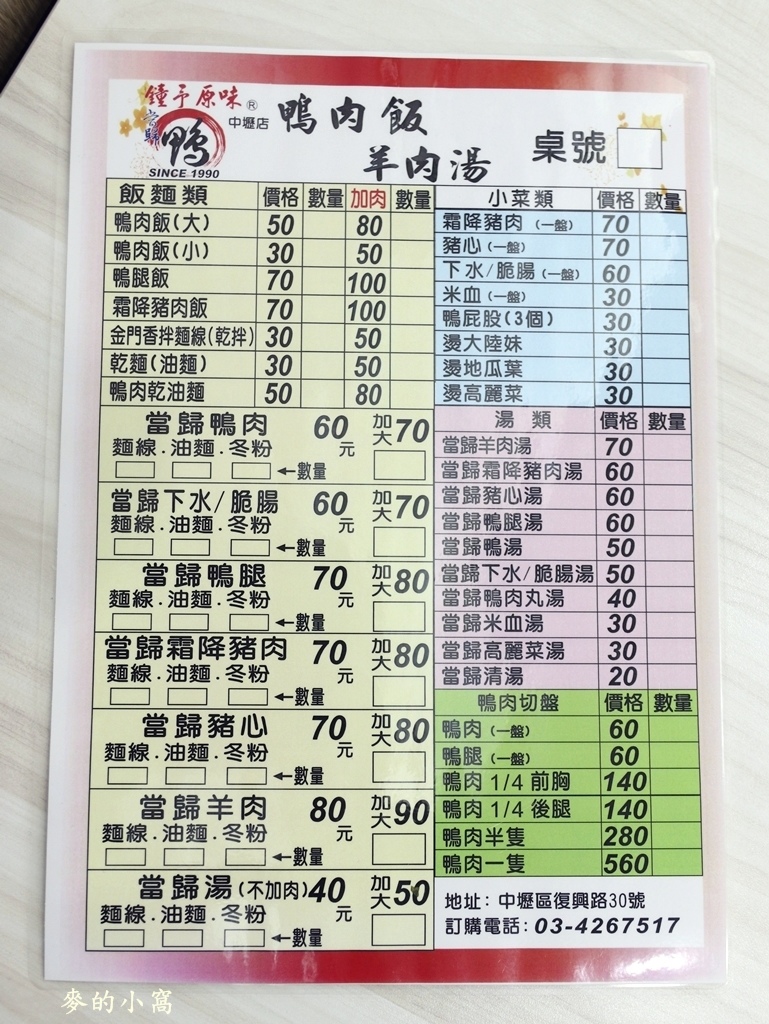 鐘予原味®
當歸鴨
SINCE 1990
中壢店
鴨肉飯
羊肉湯
桌號
飯麵類 價格 數量 加肉 數量
鴨肉飯(大) 50 80
鴨肉飯(小) 30 50
鴨腿飯 70 100
霜降豬肉飯 70 100
金門香拌麵線(乾拌) 30 50
乾麵(油麵) 30 50
鴨肉乾油麵 50 80
當歸鴨肉 60元 加大70
麵線.油麵.冬粉
←數量
當歸下水/脆腸 60元 加大70
麵線.油麵.冬粉
←數量
當歸鴨腿 70元 加大80
麵線.油麵.冬粉
←數量
當歸霜降豬肉 70元 加大80
麵線.油麵.冬粉
←數量
當歸豬心 70元 加大80
麵線.油麵.冬粉
←數量
當歸羊肉 80元 加大90
麵線.油麵.冬粉
←數量
當歸湯(不加肉)40元 加大50
麵線.油麵.冬粉
←數量
小菜類 價格 數量
霜降豬肉(一盤) 70
豬心(一盤) 70
下水/脆腸(一盤) 60
米血(一盤) 30
鴨屁股(3個) 30
燙大陸妹 30
燙地瓜葉 30
燙高麗菜 30
湯類 價格 數量
當歸羊肉湯 70
當歸霜降豬肉湯 60
當歸豬心湯 60
當歸鴨腿湯 60
當歸鴨湯 50
當歸下水/脆腸湯 50
當歸鴨肉丸湯 40
當歸米血湯 30
當歸高麗菜湯 30
當歸清湯 20
鴨肉切盤 價格 數量
鴨肉(一盤) 60
鴨腿(一盤) 60
鴨肉 1/4 前胸 140
鴨肉 1/4 後腿 140
鴨肉半隻 280
鴨肉一隻 560
地址: 中壢區復興路30號
訂購電話: 03-4267517
麥的小窩